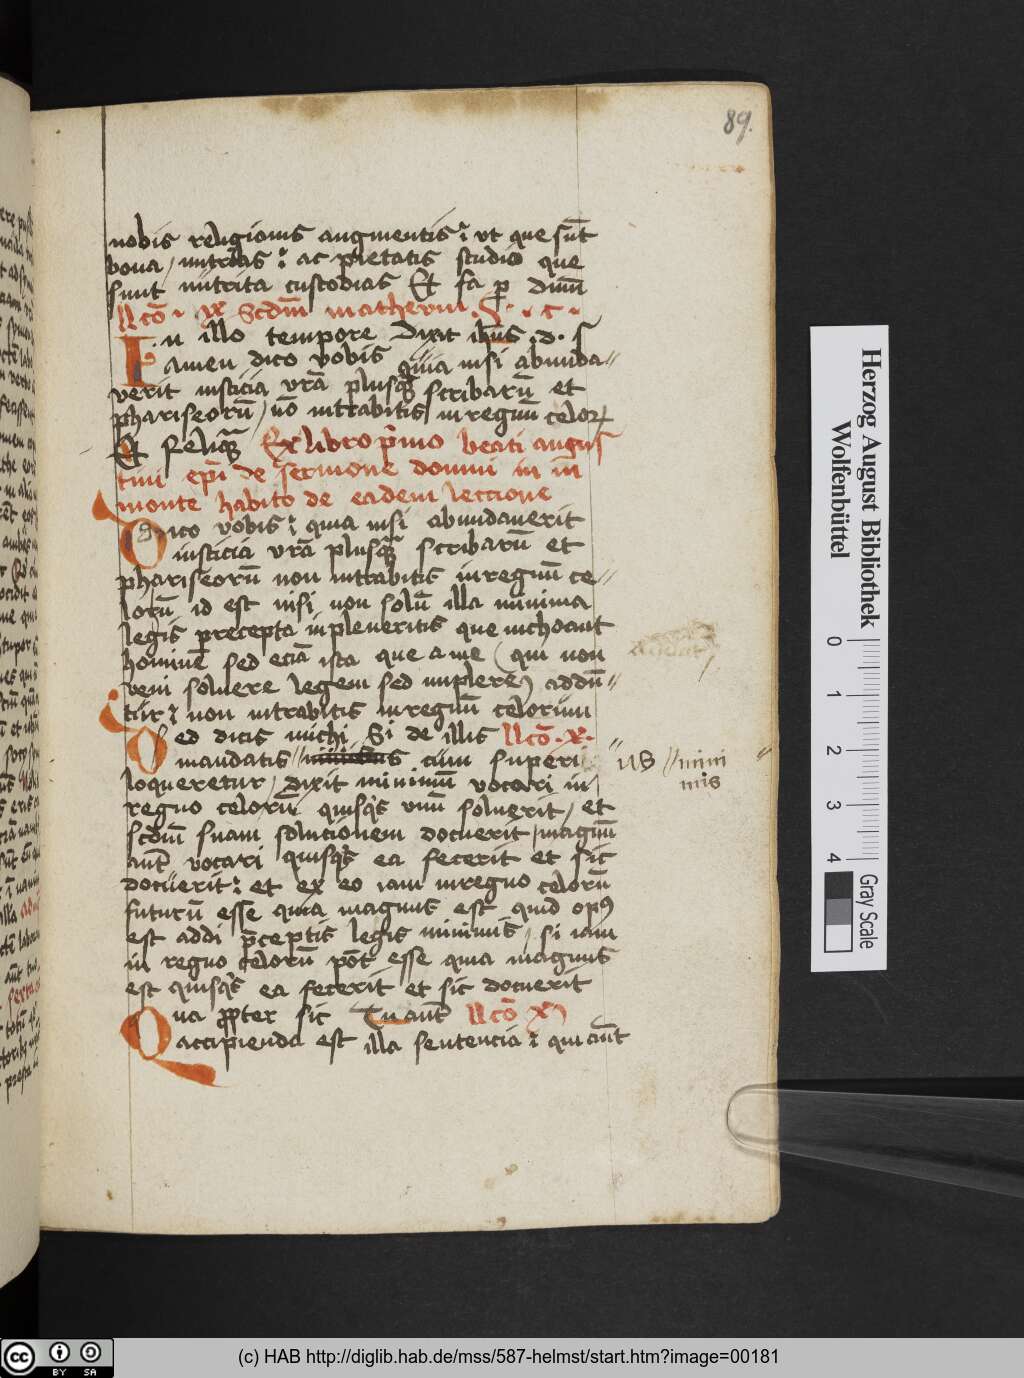 89.
nobis religionis augmentis : ut que sūt
bona / nutrias : ac pietatis studio que
sunt nutrita custodias Et fa p dnm̄
llcō · Scdm̄ matheum · c ·
In illo tempore Dixit ihūs · d · s
amen dico vobis quia nisi abunda//
verit iusticia vrā plusq scribarū et
phariseorū / nō intrabitis in regnū celoꝝ
Et reliq Ex libro p̄mo beati augus
tini ep̄i de sermone domini in in
monte habito de eadem leccione
Dico vobis : quia nisi abundauerit
iusticia vrā plusq scribarū et
phariseorū non intrabitis in regnū ce//
lorū id est nisi non solū illa minima
legis precepta inpleueritis que inchoant
hominē sed eciā ista que a me ( qui non
veni soluere legem sed implere ) addū//
tur : non intrabitis in regnū celorum
Sed dicis michi Si de illis llcō · x ·
mandatis // cum superi us // mini
mis
loqueretur / dixit minimū vocari in
regno celorū quisqs vnū soluerit / et
scdm̄ suam solucionem docuerit / magnū
aut vocari quisqs ea fecerit et sic
docuerit : et ex eo iam in regno celorū
futurū esse quia magnus est quid op9
est addi p̄ceptis legis minimis / si iam
in regno celorū pōt esse quia magnus
est quisqs ea fecerit et sic docuerit
Qua ppter sic Tu aut llcō
accipienda est illa sentencia : qui aūt
Herzog August Bibliothek
Wolfenbüttel
0 1 2 3 4
Gray Scale
cc BY SA
(c) HAB http://diglib.hab.de/mss/587-helmst/start.htm?image=00181